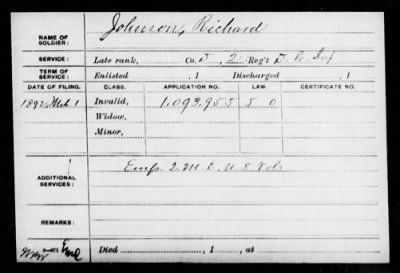 NAME OF SOLDIER: Johnson, Richard
SERVICE: Late rank, Co. D, 2 Reg't D. C. Inf
TERM OF SERVICE: Enlisted , 1 Discharged , 1
DATE OF FILING. CLASS. APPLICATION NO. LAW. CERTIFICATE NO.
1892 Mch 1 Invalid, 1,093,955 S O
Widow,
Minor,
ADDITIONAL SERVICES: 2 U S Vols
REMARKS:
Died , 1 , at